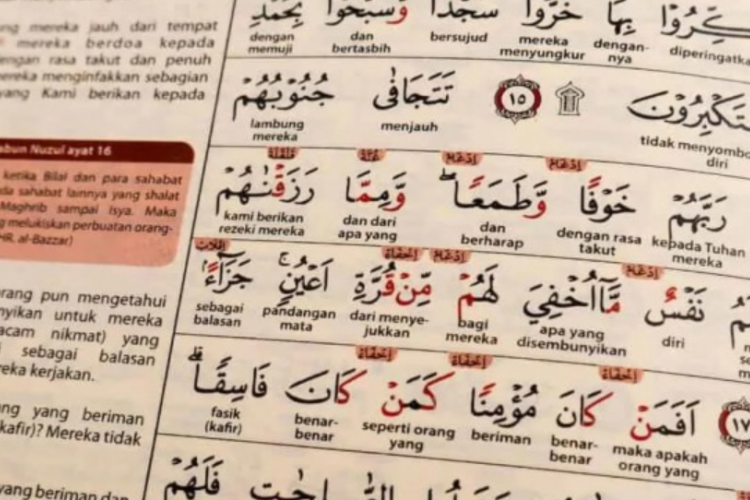 ng mereka jauh dari tempat
mereka berdoa kepada
engan rasa takut dan penuh
ereka menginfakkan sebagian
yang Kami berikan kepada
abun Nuzul ayat 16
ketika Bilal dan para sahabat
da sahabat lainnya yang shalat
Maghrib sampai Isya. Maka
g melukiskan perbuatan orang-
HR. al-Bazzar)
orang pun mengetahui
nyikan untuk mereka
acam nikmat) yang
sebagai balasan
reka kerjakan.
ng yang beriman
kafir)? Mereka tidak
yang beriman dan
خَرُّوا سُجَّدًا وَسَبَّحُوا بِحَمْدِ
diperingatka
dengan-nya
mereka menyungkur
bersujud
dan bertasbih
dengan memuji
۝١٥ تَتَجَافٰى جُنُوْبُهُمْ
tidak menyombo diri
menjauh
lambung mereka
اِدْغَامْ اِدْغَامْ
رَبَّهُمْ خَوْفًا وَّطَمَعًا وَّمِمَّا رَزَقْنٰهُمْ
kepada Tuhan mereka
dengan rasa takut
dan berharap
dan dari apa yang
kami berikan rezeki mereka
اِدْغَامْ اِدْغَامْ اِخْفَاءْ
نَفْسٌ مَّآ اُخْفِيَ لَهُمْ مِّنْ قُرَّةِ اَعْيُنٍ جَزَاۤءً
diri
apa yang disembunyikan
bagi mereka
dari menye-jukkan
pandangan mata
sebagai balasan
اِخْفَاءْ اِخْفَاءْ اِخْفَاءْ
١٧ اَفَمَنْ كَانَ مُؤْمِنًا كَمَنْ كَانَ فَاسِقًا
maka apakah orang yang
benar-benar
beriman
seperti orang yang
benar-benar
fasik (kafir)
فَلَهُمْ